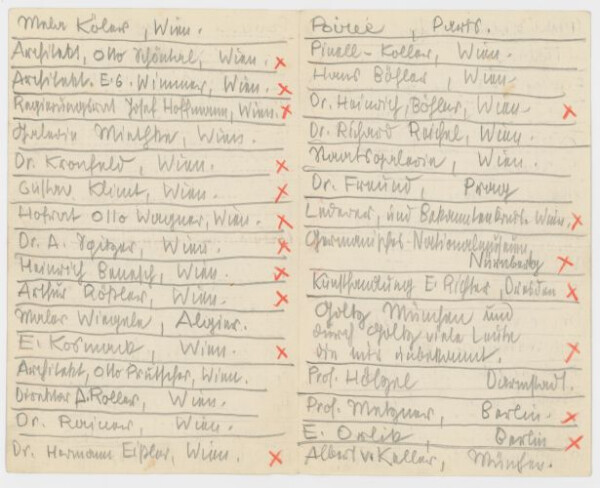 Maler Kolar, Wien.
Architekt, Otto Schönthal, Wien.
Architekt. E. G. Wimmer, Wien.
Regierungsrat Josef Hoffmann, Wien.
Galerie Miethke, Wien.
Dr. Kronfeld, Wien.
Gustav Klimt, Wien.
Hofrat Otto Wagner, Wien.
Dr. A. Spitzer, Wien.
Heinrich Benesch, Wien.
Arthur Rößler, Wien.
Maler Wiegele, Algier.
E. Kosmack, Wien.
Architekt, Otto Prutscher, Wien.
Direktor A. Roller, Wien.
Dr. Rainer, Wien.
Dr. Hermann Eißler, Wien.
Poiret, Paris.
Pinell-Koller, Wien.
Hans Böhler, Wien
Dr. Heinrich, Böhler, Wien
Dr. Richard Reichel, Wien.
Staatsgalerie, Wien.
Dr. Freund, Prag
Lederer, und Bekanntenkreis. Wien,
Germanisches-Nationalmuseum,
Nürnberg
Kunsthandlung E. Richter, Dresden
Goltz München und
durch Goltz viele Leute
die mir unbekannt.
Prof. Hölzel Darmstadt.
Prof. Metzner, Berlin.
E. Orlik, Berlin
Albert v. Keller, München.